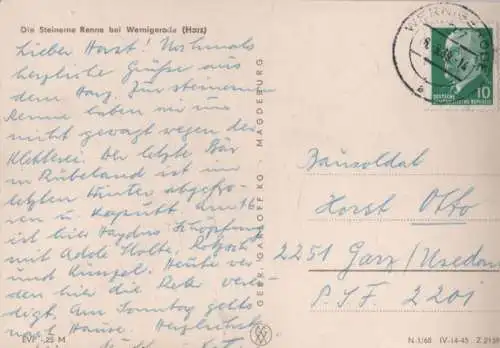 Die Steinerne Renne bei Wernigerode (Harz)
Lieber Horst! Nochmals
herzliche Grüße aus
dem Harz. Zur steinernen
Renne haben wir uns
nicht gewagt wegen der
Kletterei. Der letzte Bär
in Rübeland ist im
letzten Winter abgefro-
ren u. kaputt. Am 16.
ist hier Haydns Schöpfung
mit Adele Stolte,
und Kunzel. Heute wer-
den hier die Rekr. verei-
digt. Am Sonntag gehts
nach Hause. Herzlichst
EVP -,25 M
GEBR. GARLOFF KG · MAGDEBURG
WERNIGERODE
DEUTSCHE
DEMOKRATISCHE REPUBLIK
10
Bausoldat
Horst Otto
2251 Garz/Usedom
P.S.F. 2201
N 1/68 IV-14-45